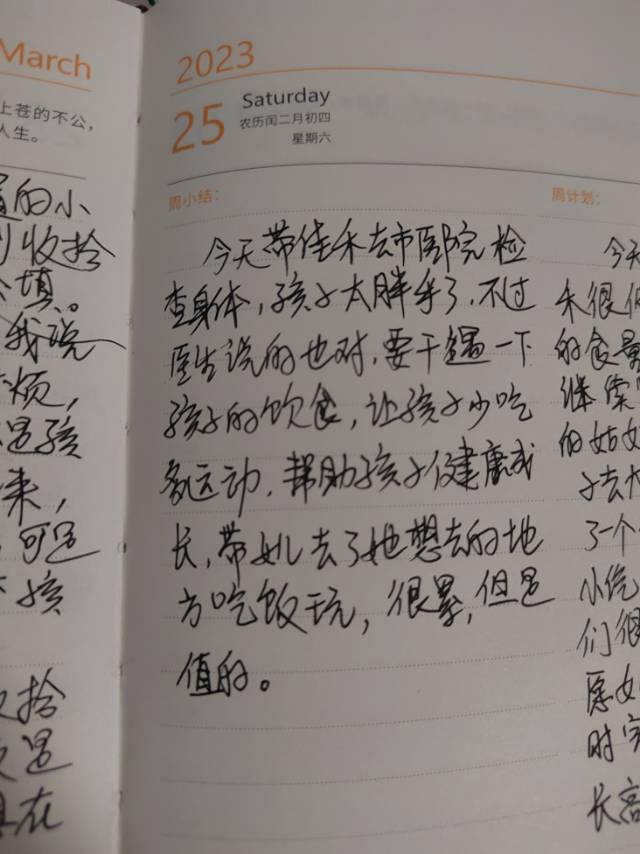 March
上苍的不公，
人生。
的小
收拾
填。
我说
烦，
是孩
来，
可是
孩
拾
是
在
2023
25
Saturday
农历闰二月初四
星期六
周小结：
今天带佳禾去市医院检
查身体，孩子太胖乎了，不过
医生说的也对，要干遇一下
孩子的饮食，让孩子少吃
多运动，帮助孩子健康成
长，带她去了她想去的地
方吃饭玩，很累，但是
值的。
周计划：
今天
禾很
的食量
继续
的姑姑
子去
了一个
小吃
们很
愿
时

长高